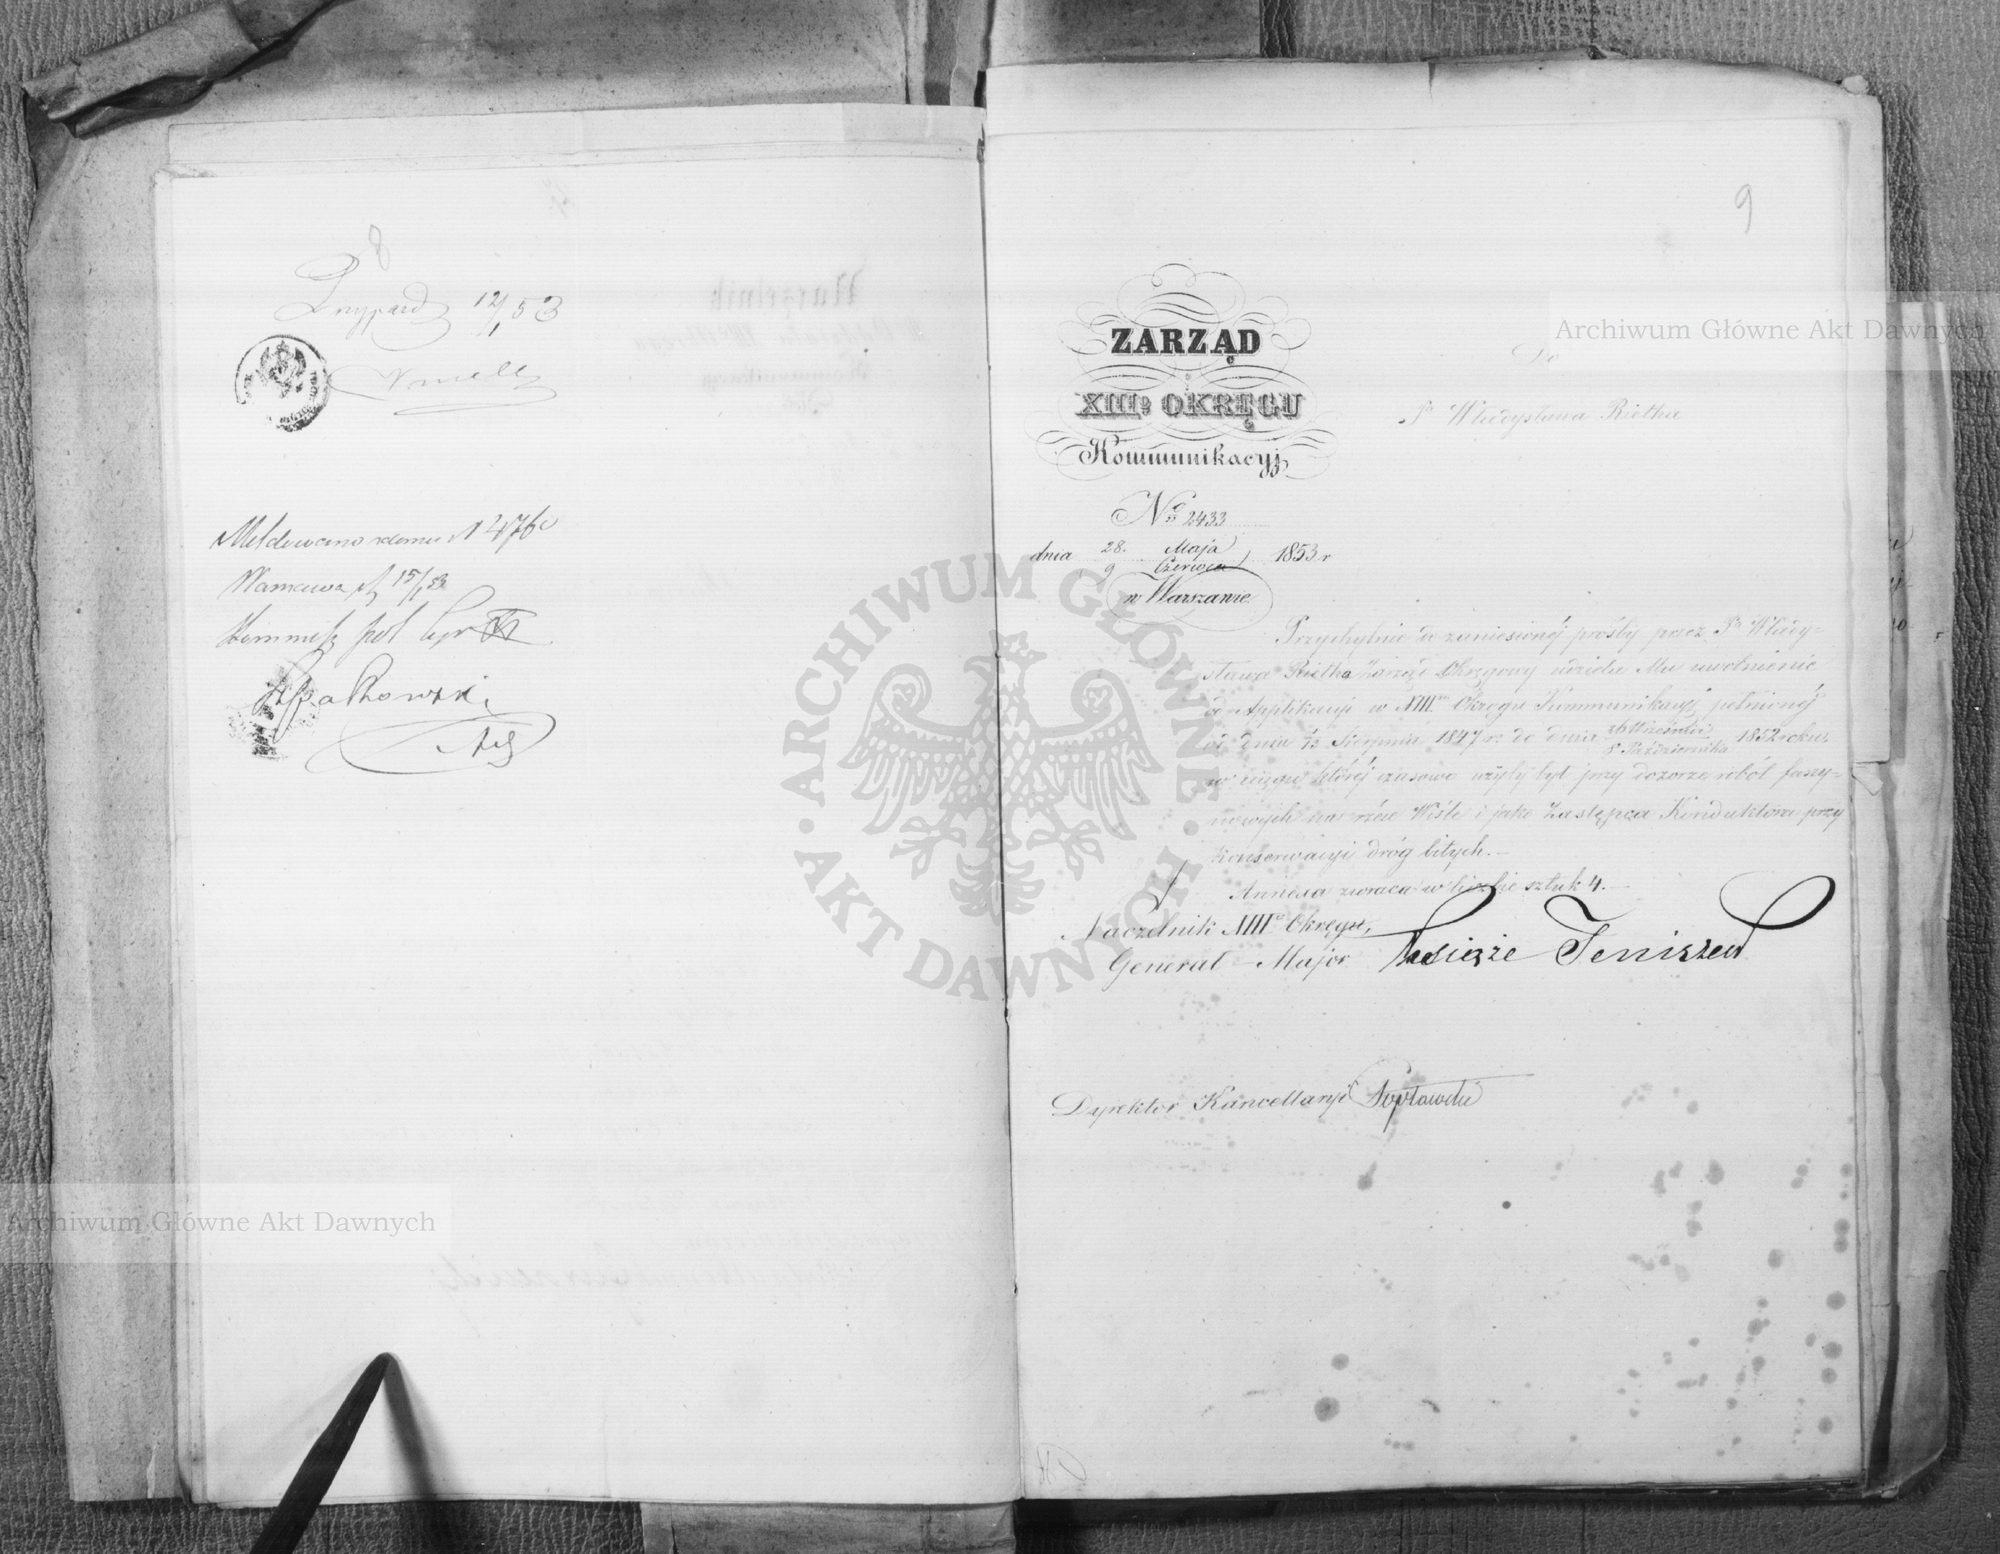 8
Przyjazd 12/1 53
Meldowano w domu N 476
Warszawa d 15/1 53
9
ZARZĄD
XIIIgo OKRĘGU
Kommunikacyj
No 2433
dnia 28. Maja / 9 Czerwca 1853 r
w Warszawie
Do
Pa Władysława Riethe
Przychylnie do zaniesionéj prośby przez Pa Włady-
sława Riethe Zarząd Okręgowy udziela Mu uwolnienie
od Applikacyi w XIII Okręgu Kommunikacyj pełnionéj
od dnia Sierpnia 1847 r. do dnia 26 Września / 8 Października 1852 roku,
w ciągu któréj czasowo użyty był przy dozorze robót faszy-
nowych na rzéce Wiśle i jako Zastępca Konduktora przy
konserwacyi dróg bitych.—
Annexa zwraca w liczbie sztuk 4.—
Naczelnik XIIIo Okręgu,
Generał-Major Xsiąże Jeniszew
Dyrektor Kancellaryi Popławski
ARCHIWUM GŁÓWNE AKT DAWNYCH
Archiwum Główne Akt Dawnych
Archiwum Główne Akt Dawnych